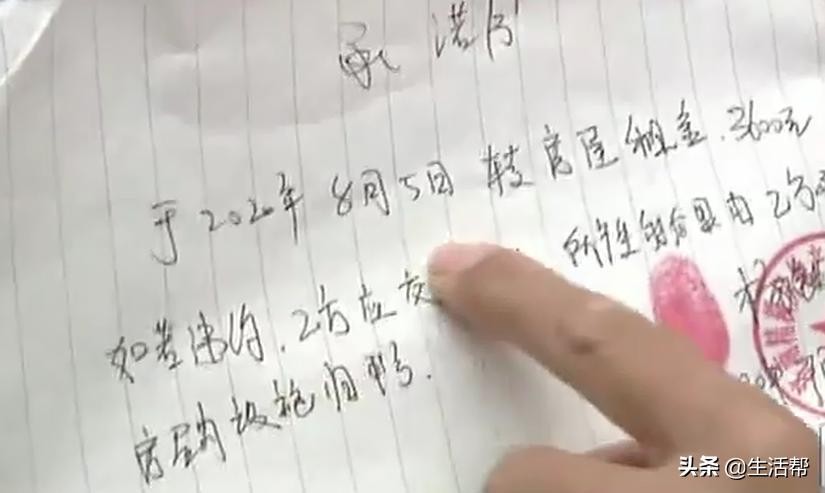 承诺书
于2020年8月5日转房屋租金.3600元
如若违约.乙方应交 所产生的后果由乙方
房屋内设施归甲方.
头条 @生活帮